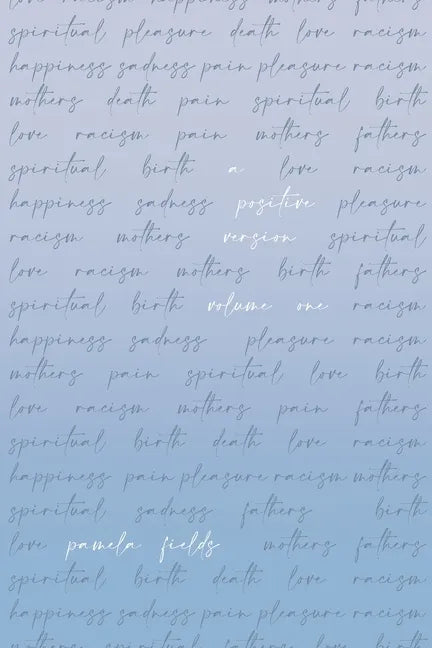 love racism happiness mothers fathers
spiritual pleasure death love racism
happiness sadness pain pleasure racism
mothers death pain spiritual birth
love racism pain mothers fathers
spiritual birth a love racism
happiness sadness positive pleasure
racism mothers version spiritual
love racism mothers birth fathers
spiritual birth volume one racism
happiness sadness pleasure racism
mothers pain spiritual love birth
love racism mothers pain fathers
spiritual birth death love racism
happiness pain pleasure racism mothers
spiritual sadness fathers birth
love pamela fields mothers fathers
spiritual birth death love racism
happiness sadness pain pleasure racism
mothers spiritual fathers love birth